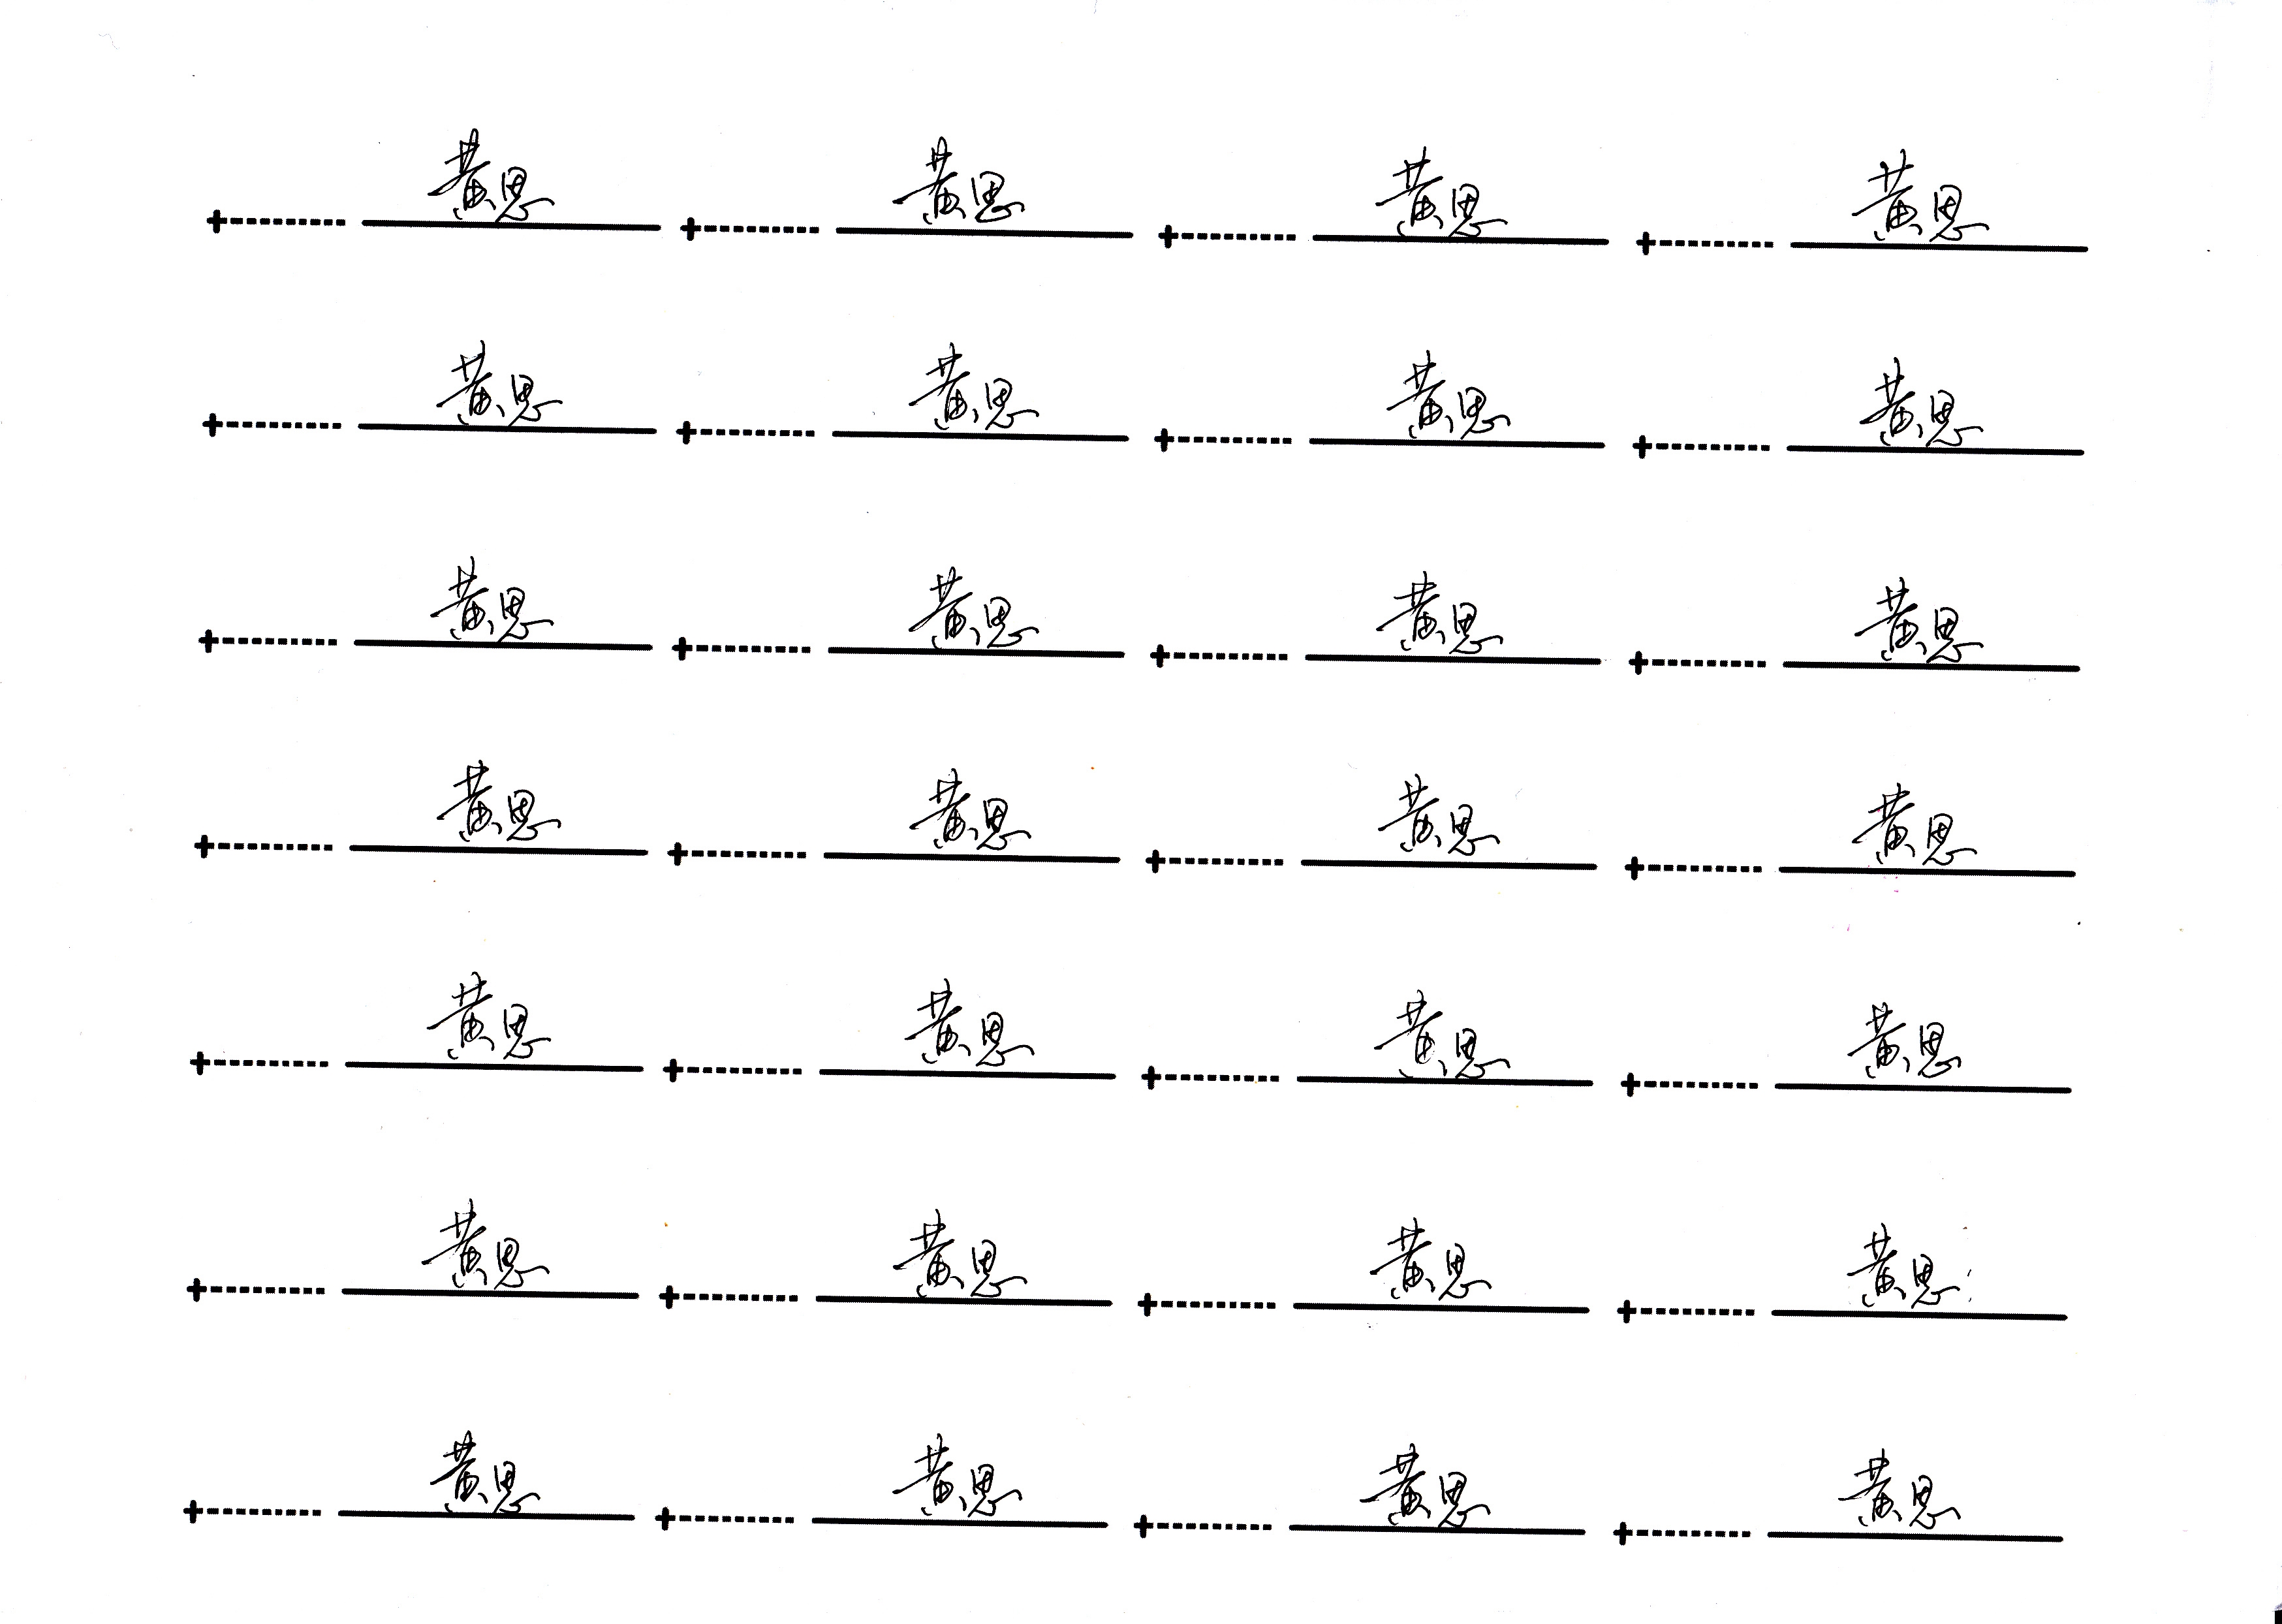 黄思 黄思 黄思 黄思
黄思 黄思 黄思 黄思
黄思 黄思 黄思 黄思
黄思 黄思 黄思 黄思
黄思 黄思 黄思 黄思
黄思 黄思 黄思 黄思
黄思 黄思 黄思 黄思